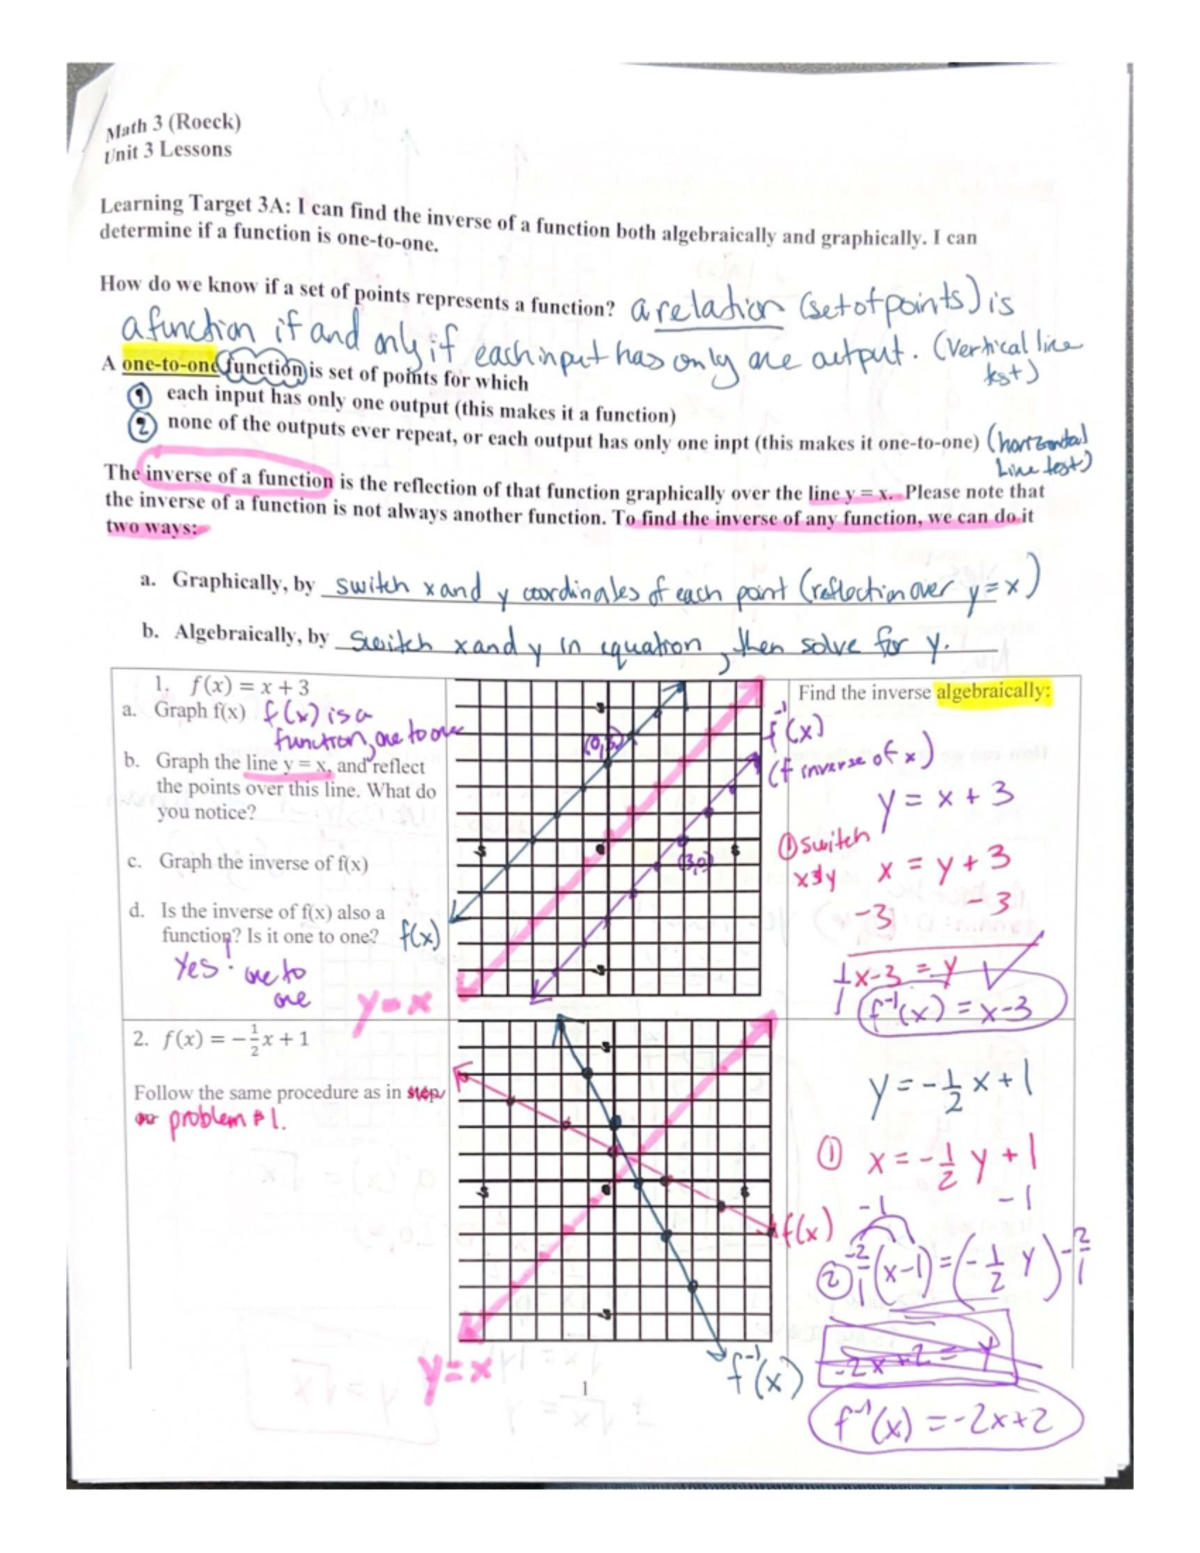 Math 3 (Roeck)
Unit 3 Lessons
Learning Target 3A: I can find the inverse of a function both algebraically and graphically. I can
determine if a function is one-to-one.
How do we know if a set of points represents a function? a relation (set of points) is
a function if and only if each input has only one output. (Vertical line
test)
A one-to-one function is set of points for which
① each input has only one output (this makes it a function)
② none of the outputs ever repeat, or each output has only one inpt (this makes it one-to-one) (horizontal
Line test)
The inverse of a function is the reflection of that function graphically over the line y = x. Please note that
the inverse of a function is not always another function. To find the inverse of any function, we can do it
two ways:
a. Graphically, by switch x and y coordinates of each point (reflection over y=x)
b. Algebraically, by switch x and y in equation, then solve for y.
1. f(x) = x + 3
a. Graph f(x) f(x) is a
function, one to one
b. Graph the line y = x, and reflect
the points over this line. What do
you notice?
c. Graph the inverse of f(x)
d. Is the inverse of f(x) also a
function? Is it one to one?
Yes! one to
one
(0,3)
(3,0)
5
5
5
5
f(x)
y=x
f⁻¹(x)
(f inverse of x)
Find the inverse algebraically:
y = x + 3
① switch
x & y
x = y + 3
-3 -3
x-3 = y
f⁻¹(x) = x-3
2. f(x) = -½x + 1
Follow the same procedure as in step
problem #1.
5
5
5
5
f(x)
y=x
f⁻¹(x)
y = -½ x + 1
① x = -½ y + 1
-1 -1
② -2/1 (x-1) = (-½ y) -2/1
-2x+2 = y
f⁻¹(x) = -2x+2
1